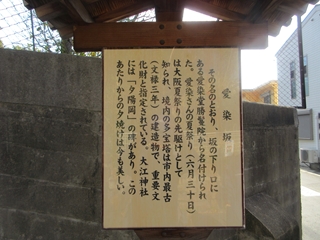 愛染坂
その名のとおり、坂の下り口に
ある愛染堂勝鬘院から名付けられ
た。愛染さんの夏祭り（六月三十日）
は大阪夏祭りの先駆けとして
知られ、境内の多宝塔は市内最古
（文禄三年）の建造物で、重要文
化財と指定されている。大江神社
には「夕陽岡」の碑があり、この
あたりからの夕焼けは今も美しい。